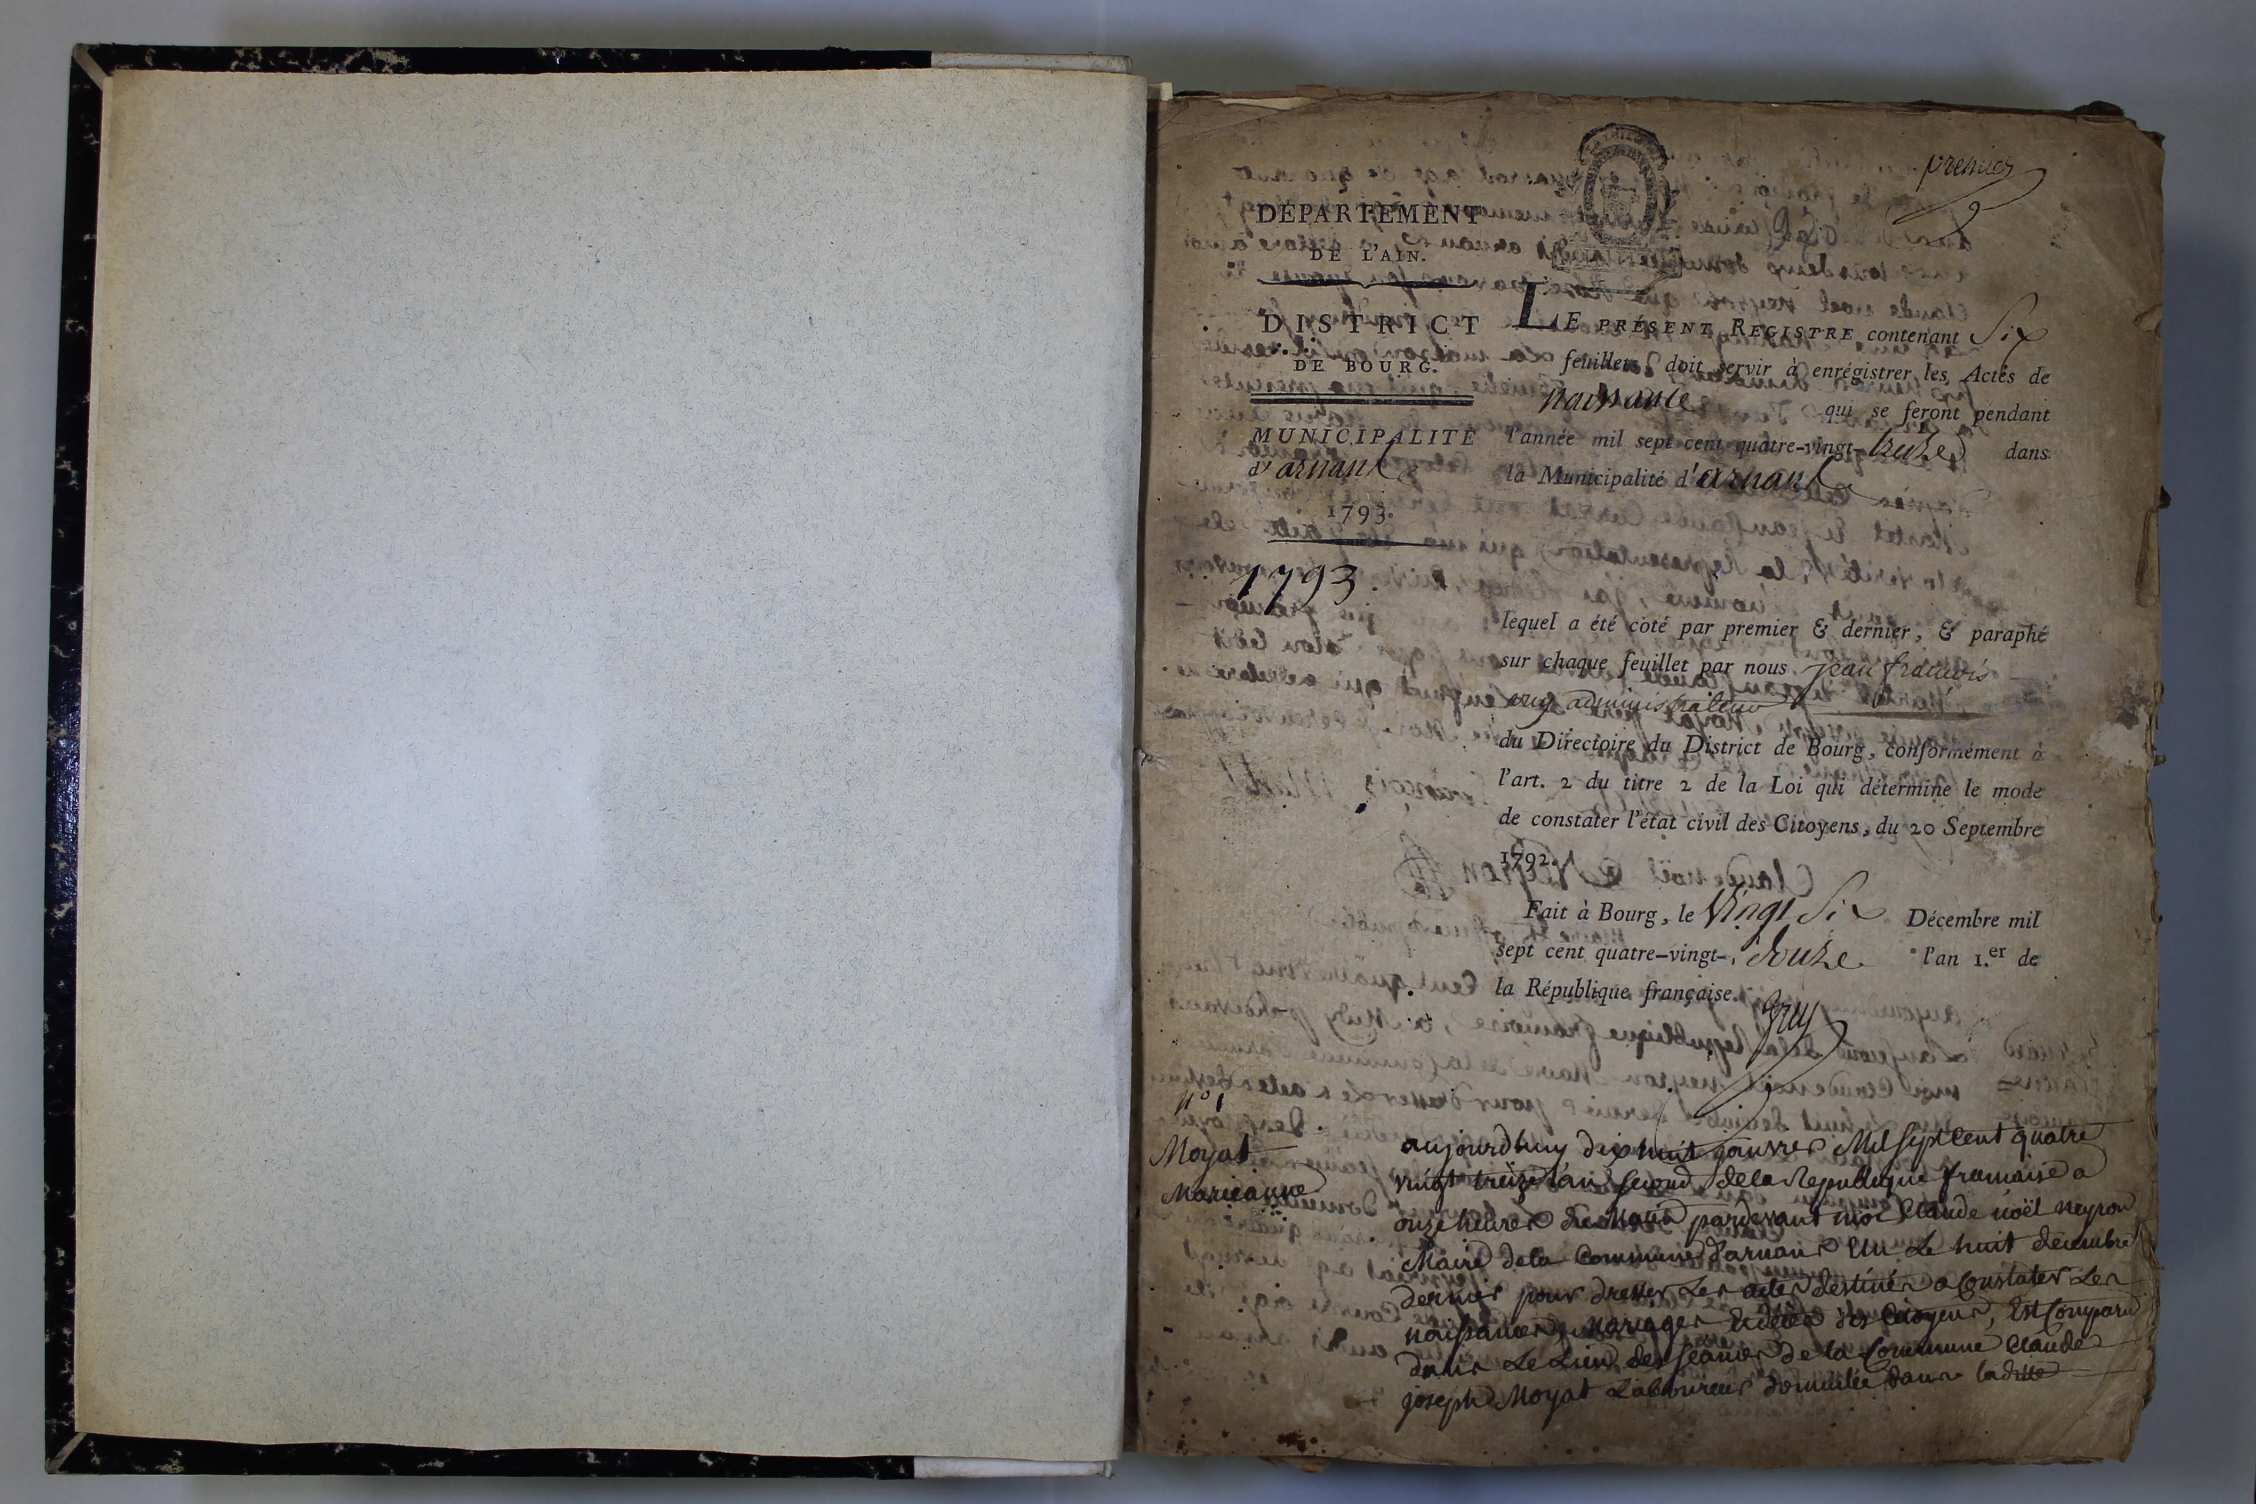 premier
DÉPARTEMENT
DE L'AIN.
DISTRICT
DE BOURG.
MUNICIPALITÉ
d'arnans
1793.
1793.
LE PRÉSENT REGISTRE contenant Six
feuillets doit servir à enrégistrer les Actes de
naissance qui se feront pendant
l'année mil sept cent quatre-vingt-treize dans
la Municipalité d'arnans
lequel a été coté par premier & dernier, & paraphé
sur chaque feuillet par nous jean francois
gruy administrateur
du Directoire du District de Bourg, conformément à
l'art. 2 du titre 2 de la Loi qui détermine le mode
de constater l'état civil des Citoyens, du 20 Septembre
1792.
Fait à Bourg, le Vingt Six Décembre mil
sept cent quatre-vingt-douze l'an 1.er de
la République française.
gruy
n° 1
Moyat
Marieanne
aujourdhuy dix huit janvier Mil Sept Cent quatre
vingt treize l'an second de la Republique francaise a
onze heures du Matin pardevant moi Claude noël neyron
Maire de la Commune d'arnans Elu Le huit décembre
dernier pour dresser Les actes destinés a Constater Les
naissances, Mariages & décès des Citoyens, Est Comparu
dans Le Lieu des séances de la Commune Claude
joseph Moyat Laboureur domicilié dans laditte